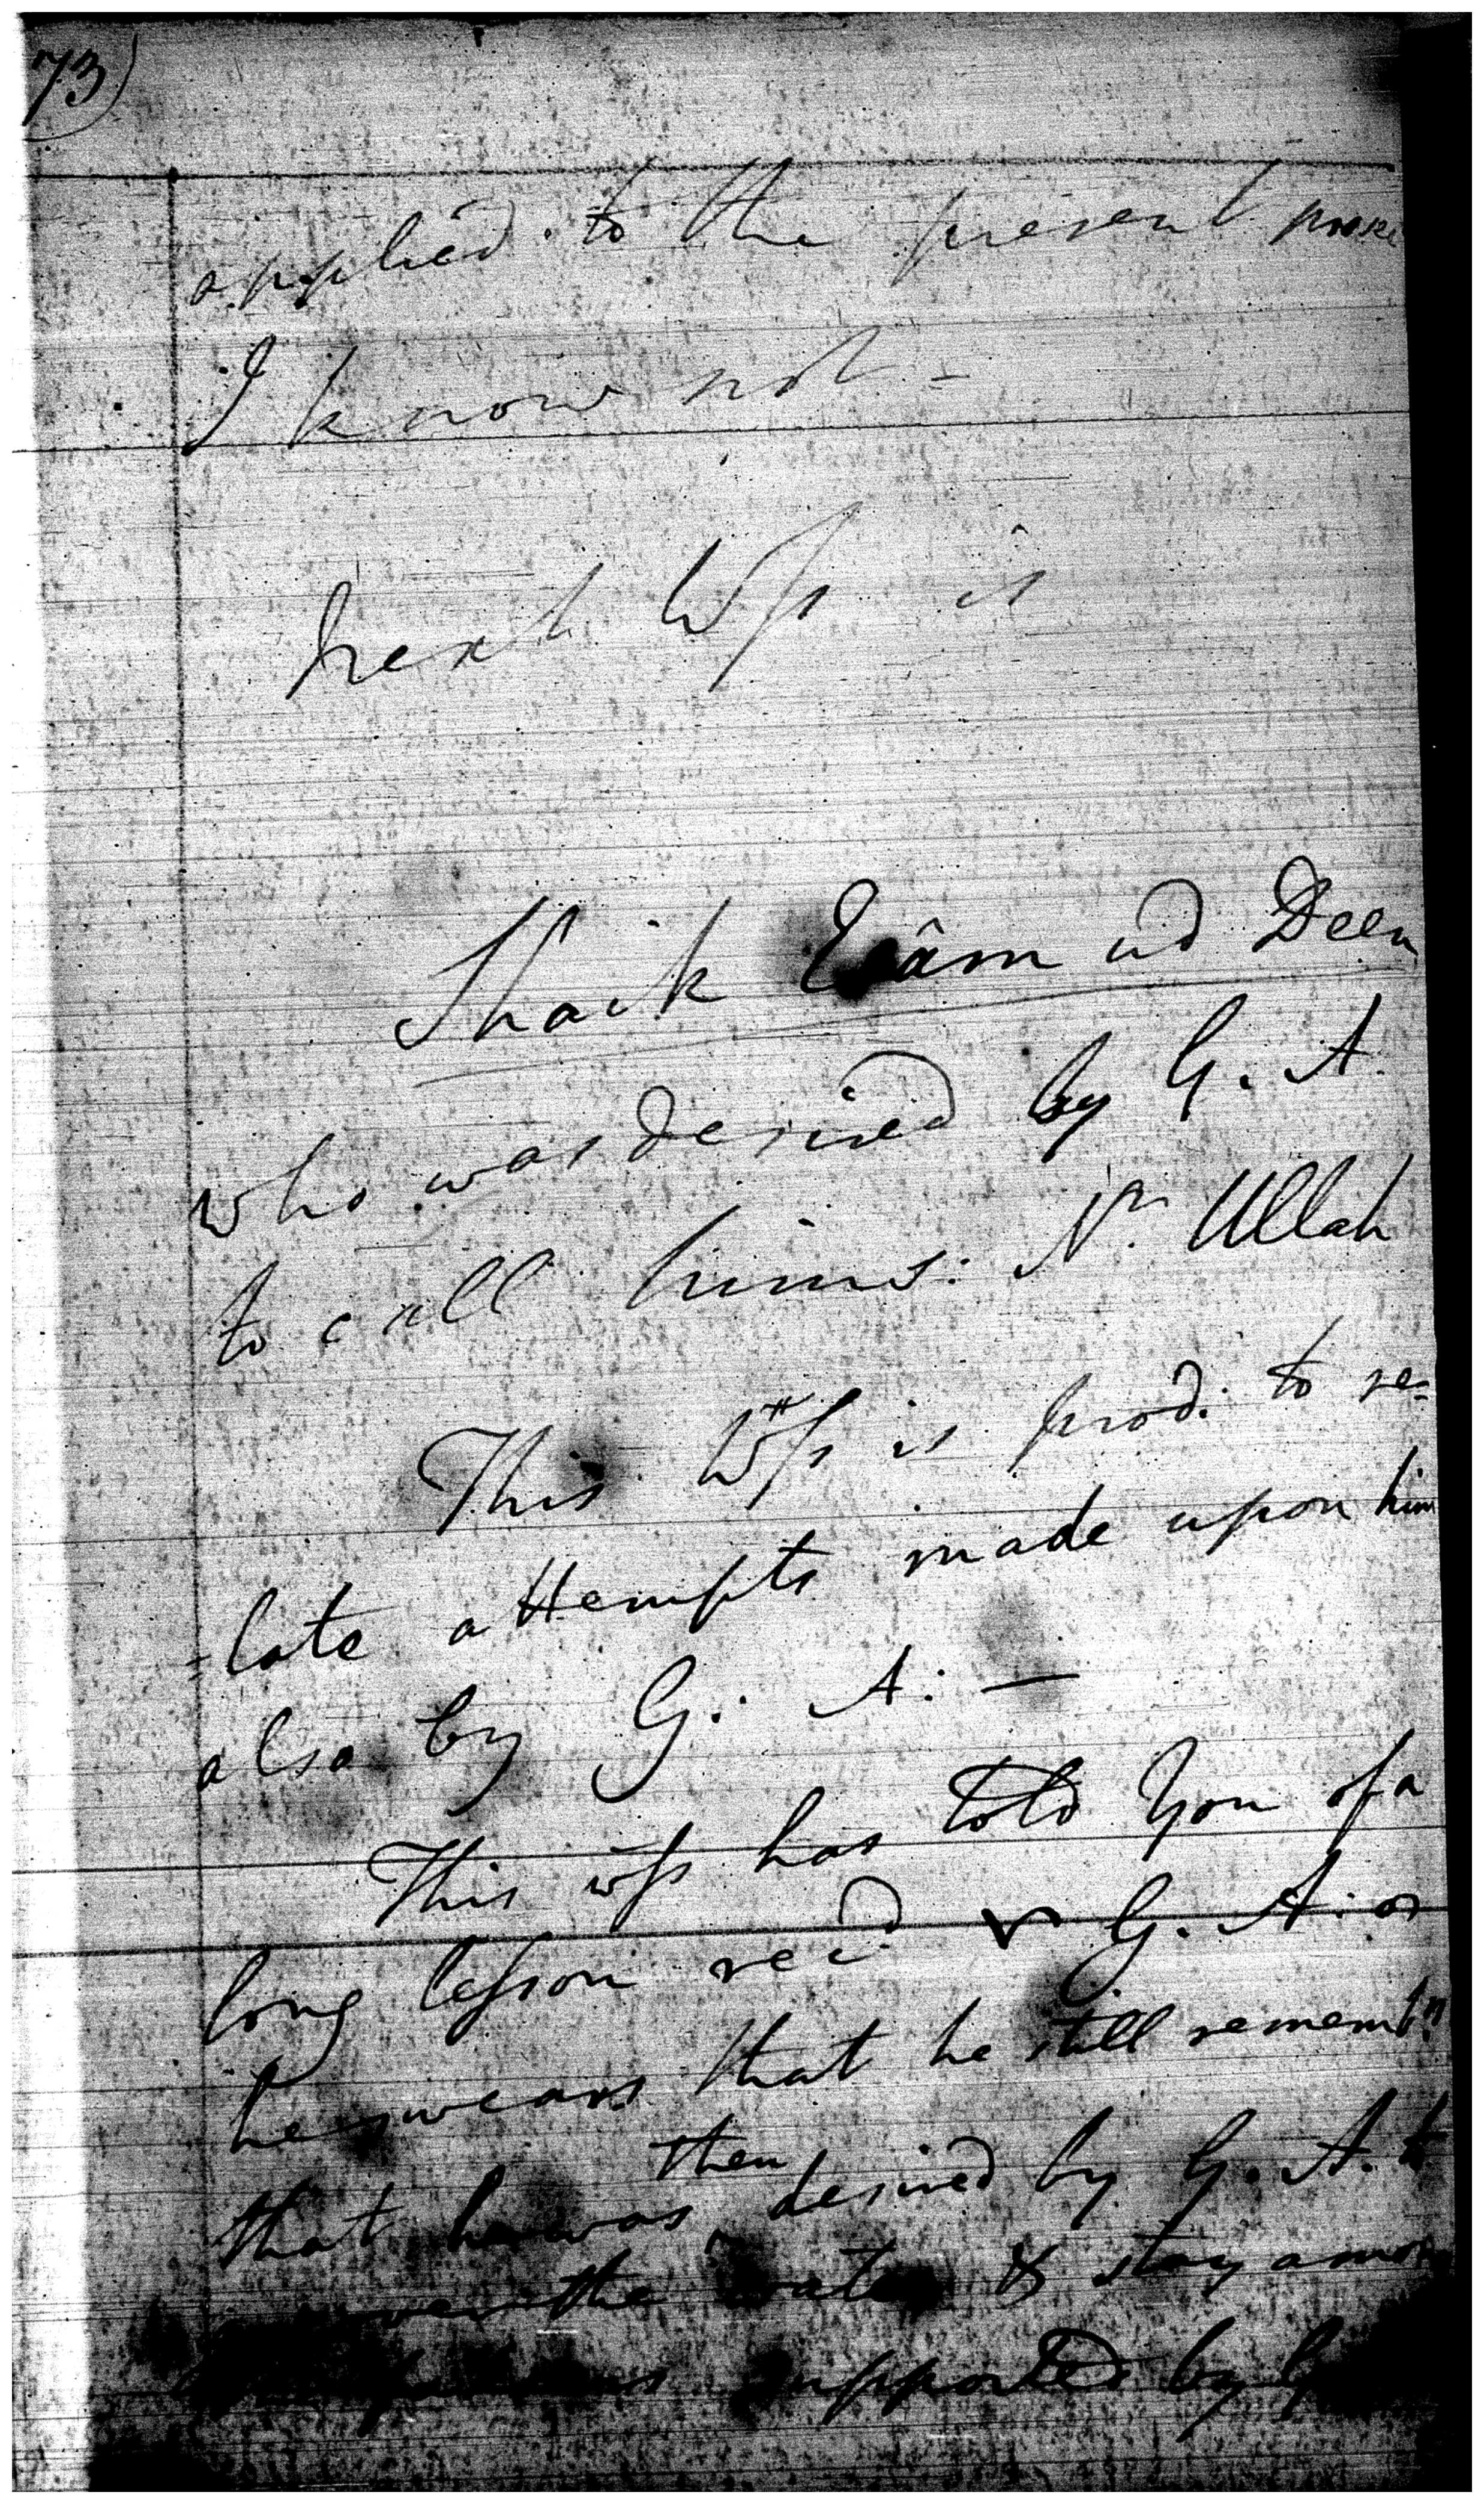 73)
applied to the present
I know not -
next Wss is
Shaik ud Deen
who was desired by G. A.
to call hims: Nr. Ullah
This Wss is prod. to re-
=late attempts made upon him
also by G. A: —
This wss has told You of a
long lesson rec'd G. A. or
he swears that he still rememb'd
that he was then desired by G. A. to
the water & stay among
supported by G